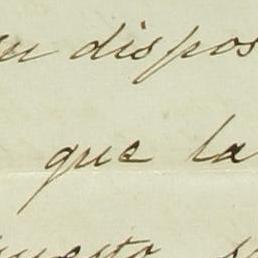 su dispos
que la
puesto